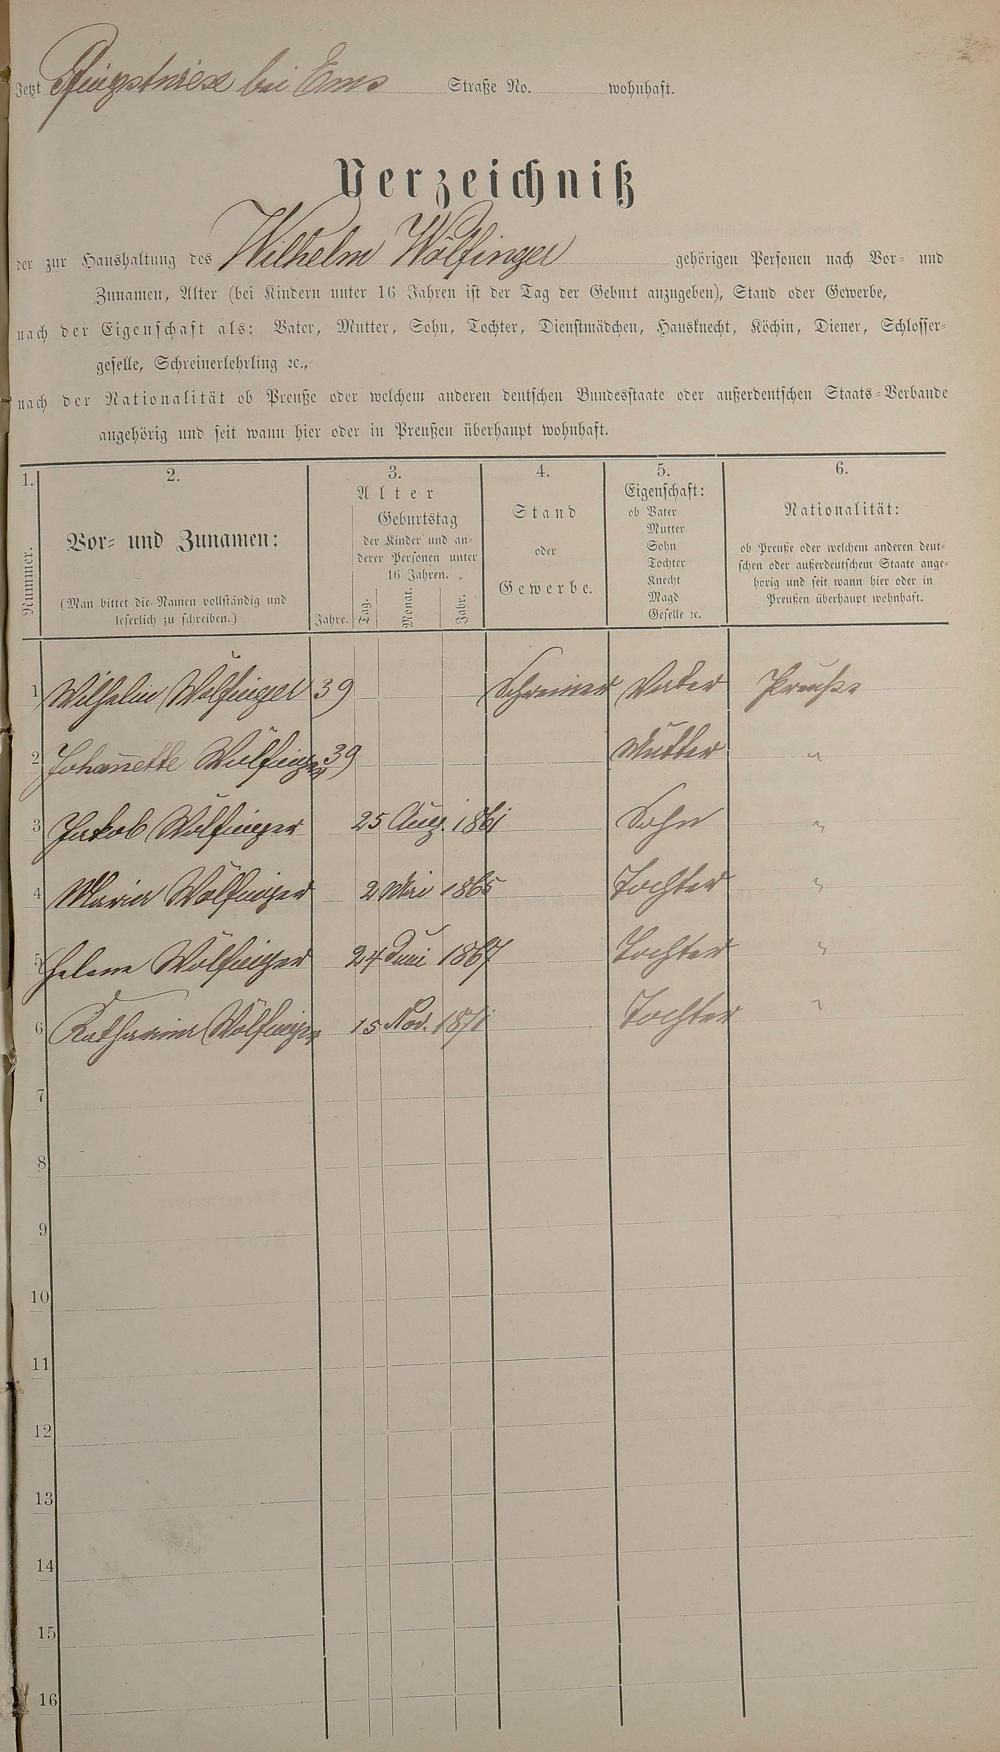 Jetzt Pfingstwiese bei Ems Straße No. wohnhaft.
Verzeichniß
der zur Haushaltung des Wilhelm Wölfinger gehörigen Personen nach Vor- und
Zunamen, Alter (bei Kindern unter 16 Jahren ist der Tag der Geburt anzugeben), Stand oder Gewerbe,
nach der Eigenschaft als: Vater, Mutter, Sohn, Tochter, Dienstmädchen, Hausknecht, Köchin, Diener, Schlosser-
geselle, Schreinerlehrling ꝛc.,
nach der Nationalität ob Preuße oder welchem anderen deutschen Bundesstaate oder außerdeutschen Staats-Verbande
angehörig und seit wann hier oder in Preußen überhaupt wohnhaft.
1. 2. 3. 4. 5. 6.
Nummer.
Vor- und Zunamen:
(Man bittet die Namen vollständig und
leserlich zu schreiben.)
Alter
Geburtstag
der Kinder und an-
derer Personen unter
16 Jahren.
Jahre. Tag. Monat. Jahr.
Stand
oder
Gewerbe.
Eigenschaft:
ob Vater
Mutter
Sohn
Tochter
Knecht
Magd
Geselle ꝛc.
Nationalität:
ob Preuße oder welchem anderen deut-
schen oder außerdeutschem Staate ange-
hörig und seit wann hier oder in
Preußen überhaupt wohnhaft.
1 Wilhelm Wölfinger 39 Schreiner Vater Preuße
2 Johan̄ette Wölfinger 39 Mutter "
3 Jakob Wölfinger 25 Aug. 1861 Sohn "
4 Maria Wölfinger 2 Mai 1865 Tochter "
5 Helena Wölfinger 24 Juni 1867 Tochter "
6 Katharina Wölfinger 15 Nov. 1871 Tochter "
7
8
9
10
11
12
13
14
15
16